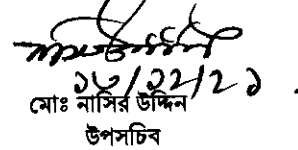 ১৬/১২/২১
মোঃ নাসির উদ্দিন
উপসচিব